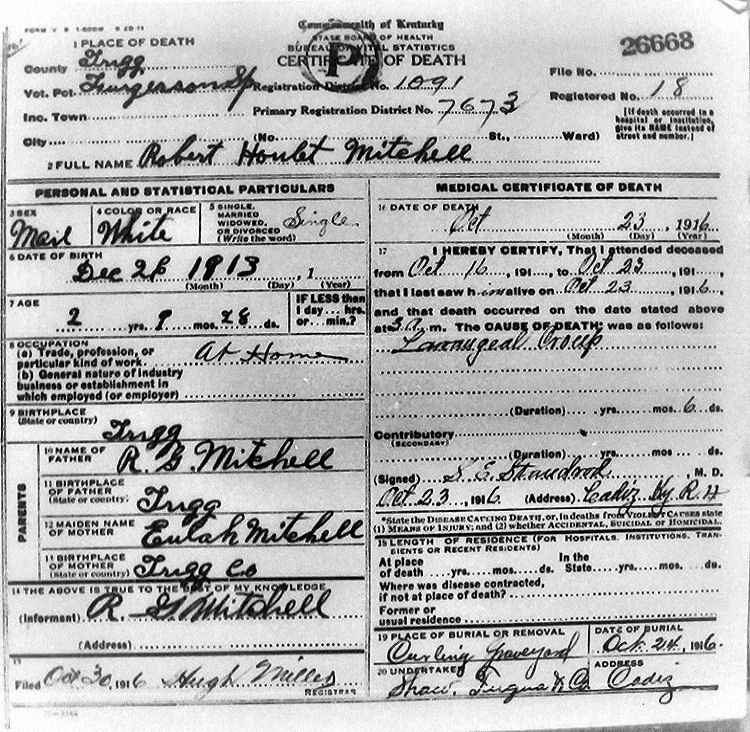 FORM V. S. 1-
Commonwealth of Kentucky
STATE BOARD OF HEALTH
BUREAU OF VITAL STATISTICS
CERTIFICATE OF DEATH
26668
1 PLACE OF DEATH
County Trigg
Vot. Pct. Furgerson Sp Registration District No. 1091 File No.
Inc. Town Primary Registration District No. 7673 Registered No. 18
City (No. St., Ward) [If death occurred in a hospital or institution, give its NAME instead of street and number.]
2 FULL NAME Robert Houlet Mitchell
PERSONAL AND STATISTICAL PARTICULARS
3 SEX Mail
4 COLOR OR RACE White
5 SINGLE, MARRIED WIDOWED, OR DIVORCED (Write the word) Single
6 DATE OF BIRTH
Dec 26 1913, 1
(Month) (Day) (Year)
7 AGE
2 yrs. 9 mos. 28 ds.
IF LESS than 1 day... hrs. or... min.?
8 OCCUPATION
(a) Trade, profession, or particular kind of work. At Home
(b) General nature of industry business or establishment in which employed (or employer)
9 BIRTHPLACE
(State or county) Trigg
PARENTS
10 NAME OF FATHER R. G. Mitchell
11 BIRTHPLACE OF FATHER (State or country) Trigg
12 MAIDEN NAME OF MOTHER Eulah Mitchell
13 BIRTHPLACE OF MOTHER (State or country) Trigg Co
14 THE ABOVE IS TRUE TO THE BEST OF MY KNOWLEDGE
(Informant) R. G Mitchell
(Address)
15
Filed Oct 30, 1916 Hugh Milles
REGISTRAR
MEDICAL CERTIFICATE OF DEATH
16 DATE OF DEATH
Oct 23, 1916
(Month) (Day) (Year)
17 I HEREBY CERTIFY, That I attended deceased
from Oct 16, 191 , to Oct 23 191 ,
that I last saw him alive on Oct 23, 1916,
and that death occurred on the date stated above
at 3 m. The CAUSE OF DEATH* was as follows:
Larangeal Croup
(Duration) yrs. mos. 6 ds.
Contributory
(SECONDARY)
(Duration) yrs. mos. ds.
(Signed) M. D.
Oct 23, 1916 (Address) Cadiz Ky R 4
*State the DISEASE CAUSING DEATH, or, in deaths from VIOLENT CAUSES state (1) MEANS OF INJURY; and (2) whether ACCIDENTAL, SUICIDAL OR HOMICIDAL.
18 LENGTH OF RESIDENCE (FOR HOSPITALS, INSTITUTIONS, TRANSIENTS OR RECENT RESIDENTS)
At place of death yrs. mos. ds. In the State yrs. mos. ds.
Where was disease contracted, if not at place of death?
Former or usual residence
19 PLACE OF BURIAL OR REMOVAL
Curling Graveyard
DATE OF BURIAL
Oct. 24, 1916.
20 UNDERTAKER
Shaw, Fuqua & Co
ADDRESS
Cadiz